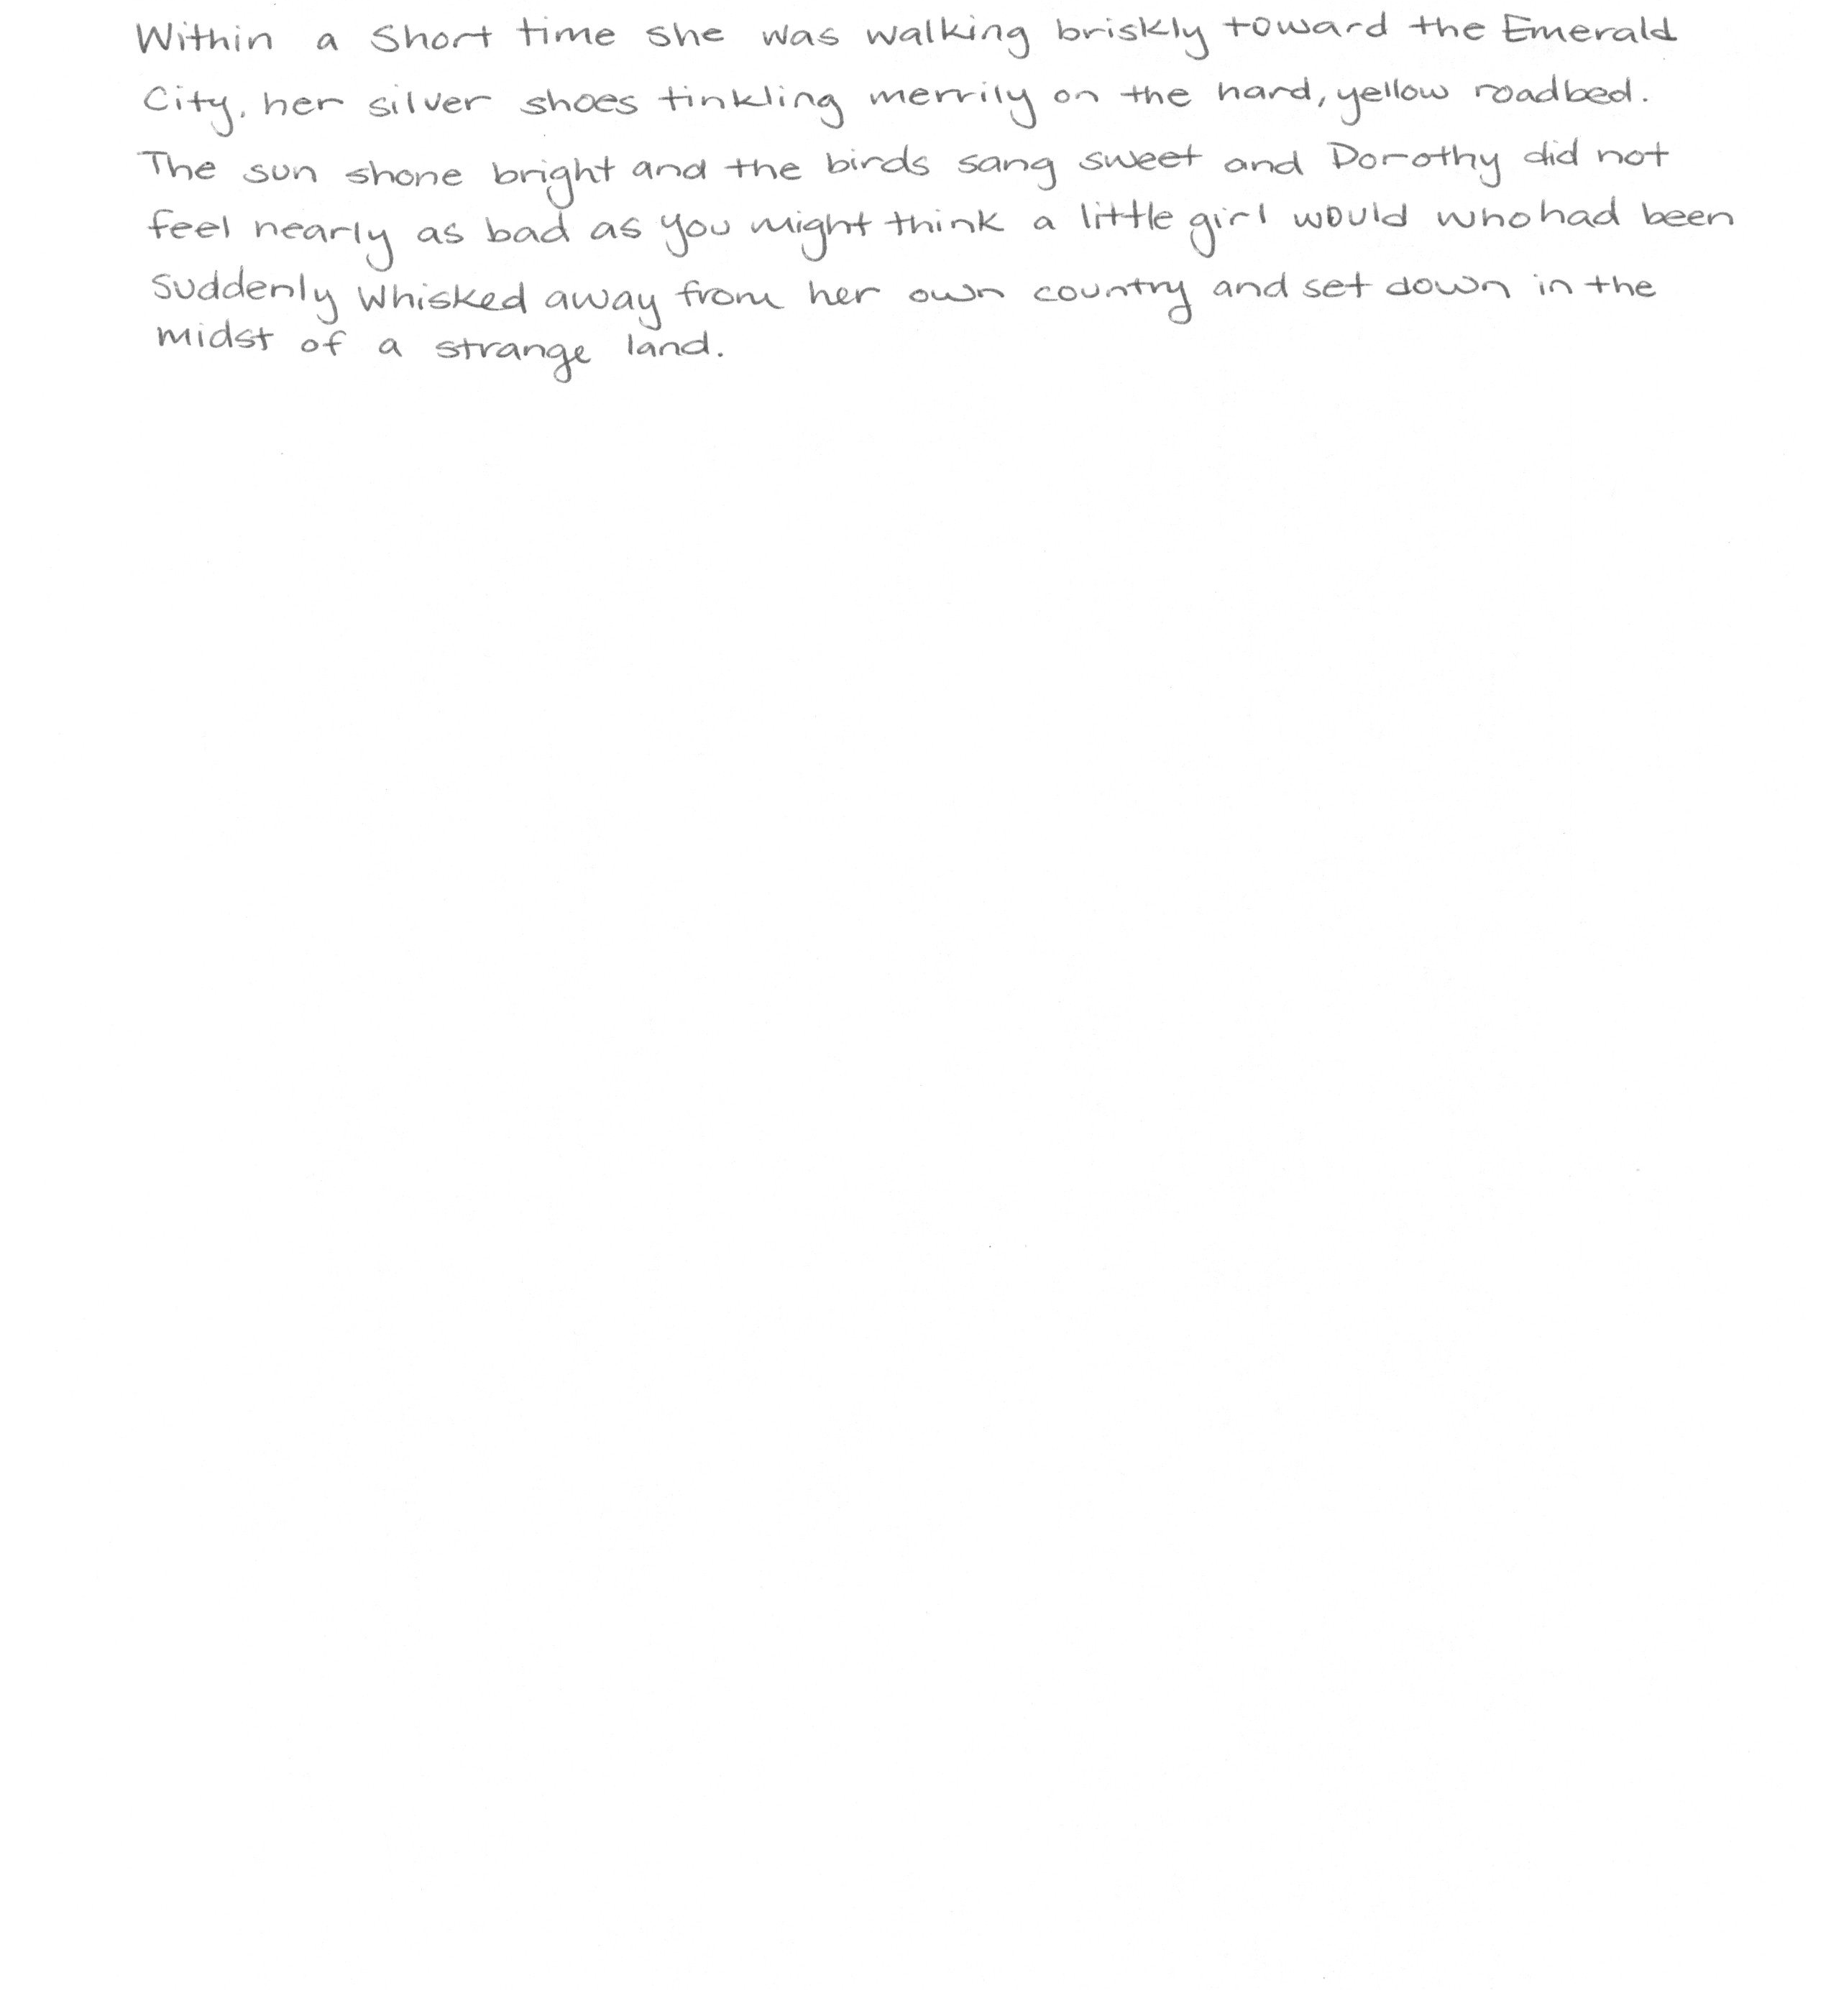 Within a Short time she was walking briskly toward the Emerald
City, her silver shoes tinkling merrily on the hard, yellow roadbed.
The sun shone bright and the birds sang sweet and Dorothy did not
feel nearly as bad as you might think a little girl would who had been
suddenly whisked away from her own country and set down in the
midst of a strange land.